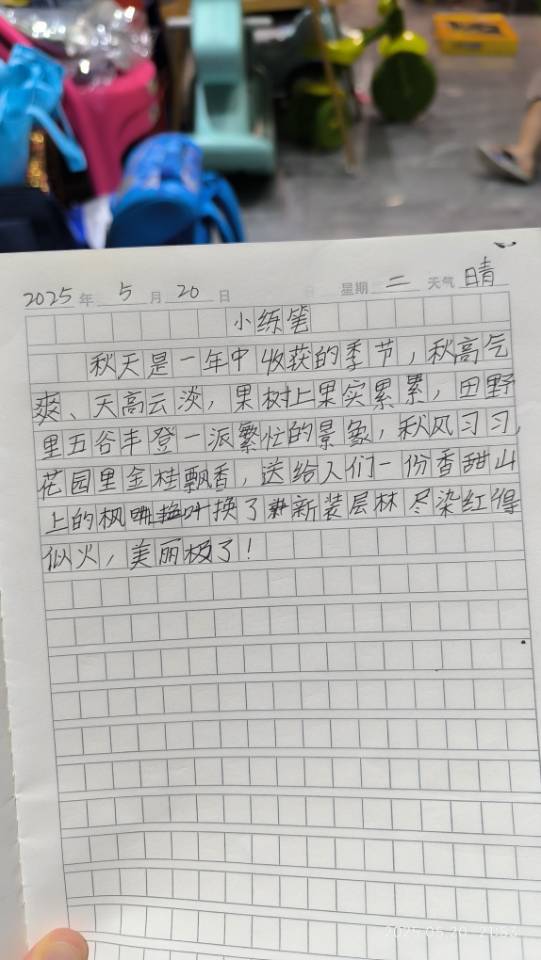 2025年 5月 20日 星期 二 天气 晴
小练笔
秋天是一年中收获的季节，秋高气
爽、天高云淡，果树上果实累累，田野
里五谷丰登一派繁忙的景象，秋风习习，
花园里金桂飘香，送给人们一份香甜山
上的枫叶换了新装层林尽染红得
似火，美丽极了！
2025.05.20 21:52